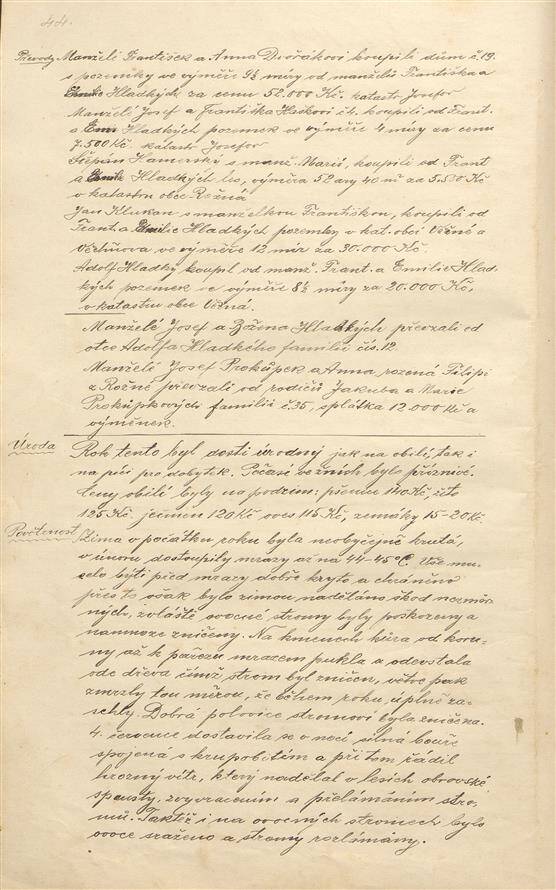 44.
Převody Manželé František a Anna Dvořákovi koupili dům č. 19.
s pozemky ve výměře 9½ míry od manželů Františka a
Hladkých za cenu 52.000 Kč. katastr Josefov
Manželé Josef a Františka Haškovi č 4. koupili od Frant.
a Hladkých pozemek ve výměře 4 míry za cenu
7.500 Kč katastr Josefov
Štěpán Kamerský s manž. Marií, koupili od Frant
a Hladkých les, výměra 52 ary 40 m² za 5.550 Kč
v katastru obce Rožná
Jan Klukan s manželkou Františkou, koupili od
Frant. a Emilie Hladkých pozemky v kat. obcí Věžné a
Věchnova ve výměře 12 mír za 30.000 Kč.
Adolf Hladký koupil od manž. Frant. a Emilie Hlad-
kých pozemek ve výměře 8½ míry za 20.000 Kč,
v katastru obce Věžná.
Manželé Josef a Božena Hladkých převzali od
otce Adolfa Hladkého familii čís. 12.
Manželé Josef Prokůpek a Anna rozená Filipi
z Rožné převzali od rodičů Jakuba a Marie
Prokůpkových familii č. 35, splátka 12.000 Kč a
výměnek.
Úroda Rok tento byl dosti úrodný jak na obilí, tak i
na píci pro dobytek. Počasí ve žních bylo příznivé.
Ceny obilí byly na podzim: pšenice 140 Kč, žito
125 Kč. ječmen 120 Kč oves 115 Kč, zemáky 15-20 Kč.
Povětrnost Zima v počátku roku byla neobyčejně krutá,
v únoru dostoupily mrazy až na 44-45° C. Vše mu-
selo býti před mrazy dobře kryto a chráněno
přes to však bylo zimou naděláno škod nezměr-
ných, zvláště ovocné stromy byly poškozeny a
namnoze zničeny. Na kmenech kůra od koru-
ny až k pařezu mrazem pukla a odevstala
ode dřeva čímž strom byl zničen, větve pak
zmrzly tou měrou, že během roku úplně za-
schly. Dobrá polovice stromoví byla zničena.
4. července dostavila se v noci silná bouře
spojená s krupobitím a při tom řádil
hrozný vítr, který nadělal v lesích obrovské
spousty, zvyvracením a přelámáním stro-
mů. Taktéž i na ovocných stromech bylo
ovoce sraženo a stromy rozlámány.